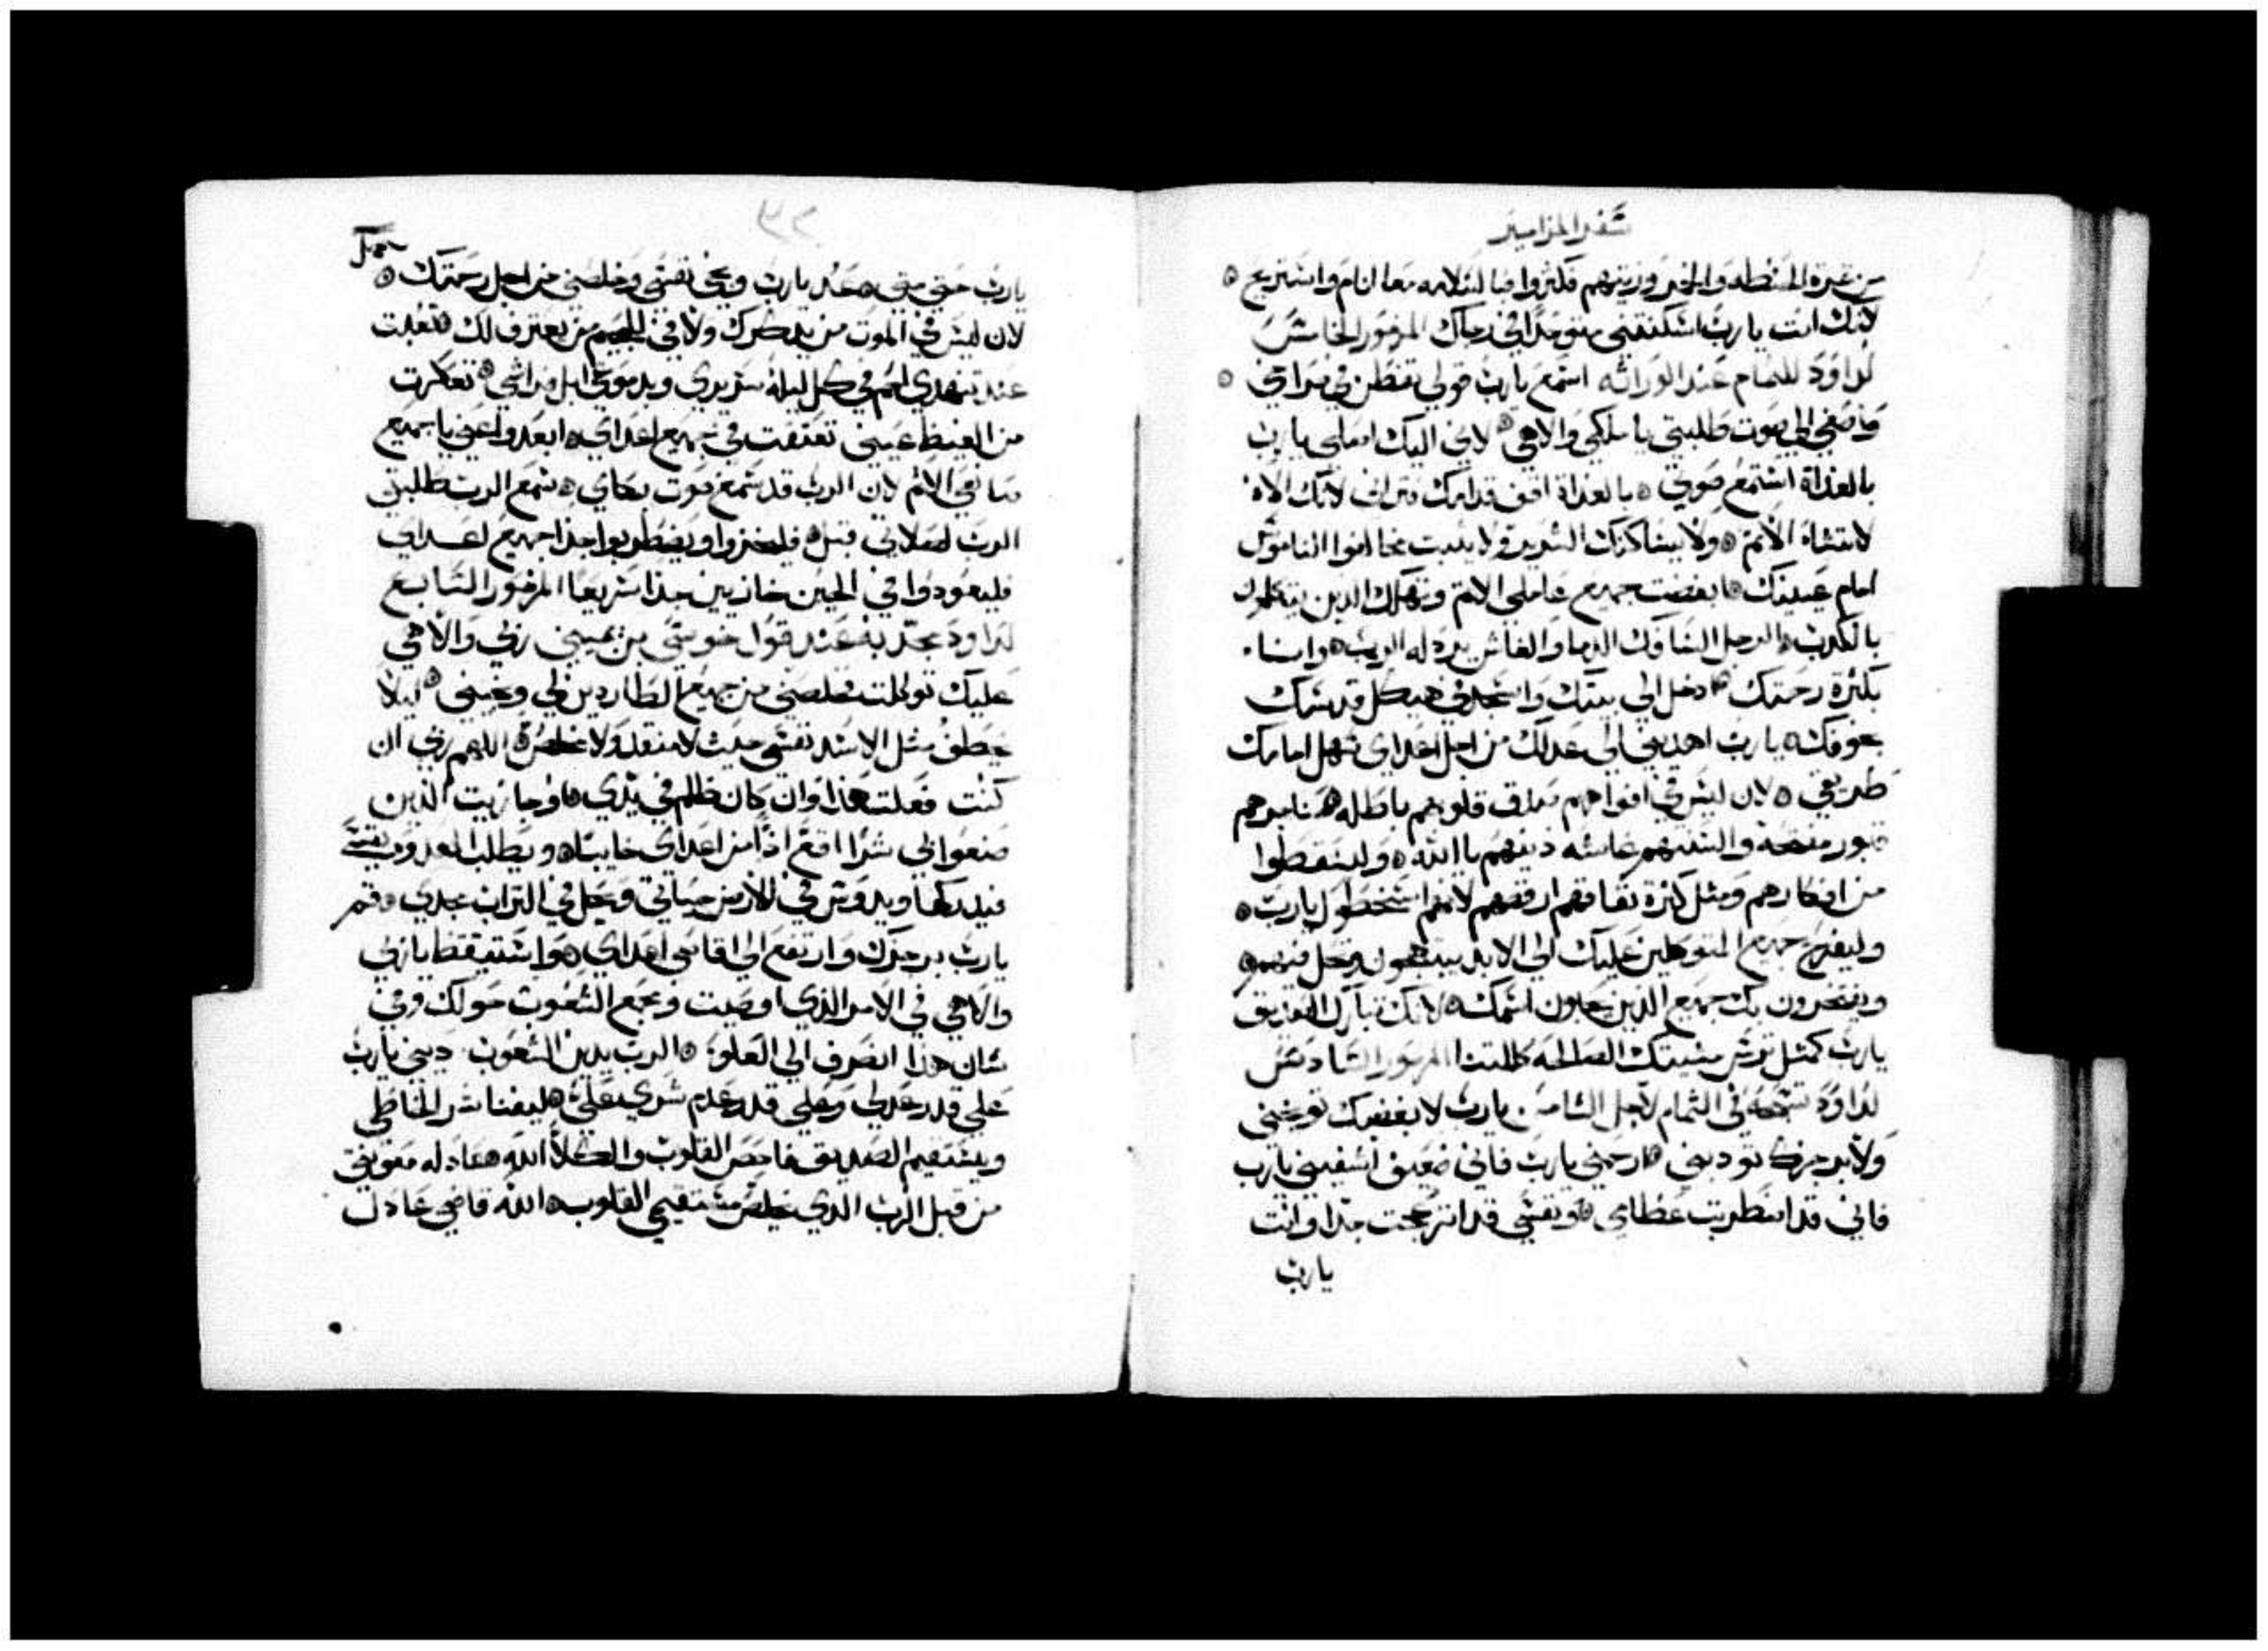 سفر المزامير
من تمرة الحنطه والخمر وزيتهم فكثروا فبالسلامه معا انام واستريح
لانك انت يا رب اسكنتني متوحدا في رجاك المزمور الخامس
لداوود للتمام عند الوراثه استمع يارب قولي تفطن في صراخي
واصغي الي صوت طلبتي يا ملكي والاهي لاني اليك اصلي يا رب
بالغداة استمع صوتي بالغداة اقف قدامك وتراني لانك الاه
لا تشاء الاثم ولا يساكنك الشرير ولا يثبت مخالفوا الناموس
امام عينيك ابغضت جميع عاملي الاثم وتهلك الذين يتكلمون
بالكدب الرجل السافك الدما والغاش يردله الرب وانا
بكثرة رحمتك ادخل الي بيتك واسجد في هيكل قدسك
بخوفك يا رب اهديني الي عدلك من اجل اعداي سهل امامك
طريقي لان ليس في افواههم صدق قلوبهم باطله حناجرهم
قبور مفتحة والسنتهم غاشه دينهم يا الله وليسقطوا
من افكارهم ومثل كثرة نفاقهم ارفضهم لانهم اسخطوك يارب
وليفرح جميع المتوكلين عليك الي الابد يبتهجون وتحل فيهم
ويفتخرون بك جميع الذين يحبون اسمك لانك تبارك الصديق
يارب كمثل ترس مشيتك الصالحة كللتنا المزمور السادس
لداوود تسبحة في التمام لاجل الثامن يارب لا بغضبك توبخني
ولا برجزك تودبني ارحمني يارب فاني ضعيف اشفيني يارب
فاني قد اضطربت عظامي ونفسي قد انزعجت جدا وانت
يارب
٣٢
يارب حتي متي عد يارب ونجي نفسي وخلصني من اجل رحمتك
لان ليس في الموت من يدكرك ولا في الجحيم من يعترف لك تعبت
عند تنهدي احم في كل ليلة سريري وبدموعي ابل فراشي تعكرت
من الغيظ عيني تعتقت في جميع اعداي ابعدوا عني يا جميع
صانعي الاثم لان الرب قد سمع صوت بكاي سمع الرب طلبتي
الرب لصلاتي قبل فليخزوا ويضطربوا جدا جميع اعداي
فليعودوا في الحين خازيين جدا سريعا المزمور السابع
لداود عند قول خوسي بن يميني ربي والاهي
عليك توكلت فخلصني من جميع الطاردين لي ونجيني ليلا
يخطف مثل الاسد نفسي حيث لا منقد ولا مخلص اللهم ربي ان
كنت فعلت هذا وان كان ظلم في يدي او جازيت الذين
صنعوا لي شرا اقع اذا من اعداي خايبا ويطلب العدو نفسي
فيدركها ويدوس في الارض حياتي ويحل في التراب مجدي قم
يارب برجزك وارتفع الي اقاصي اعداي واستيقظ يا ربي
والاهي في الامر الذي اوصيت ومجمع الشعوب حولك وفي
شان هذا انصرف الي العلو الرب يدين الشعوب ديني يارب
علي قدر عدلي وعلي قدر عدم شري علي ليفنا شر الخاطي
ويستقيم الصديق فاحص القلوب والكلا الله عادله معونتي
من قبل الرب الذي يخلص مستقيمي القلوب الله قاضي عادل